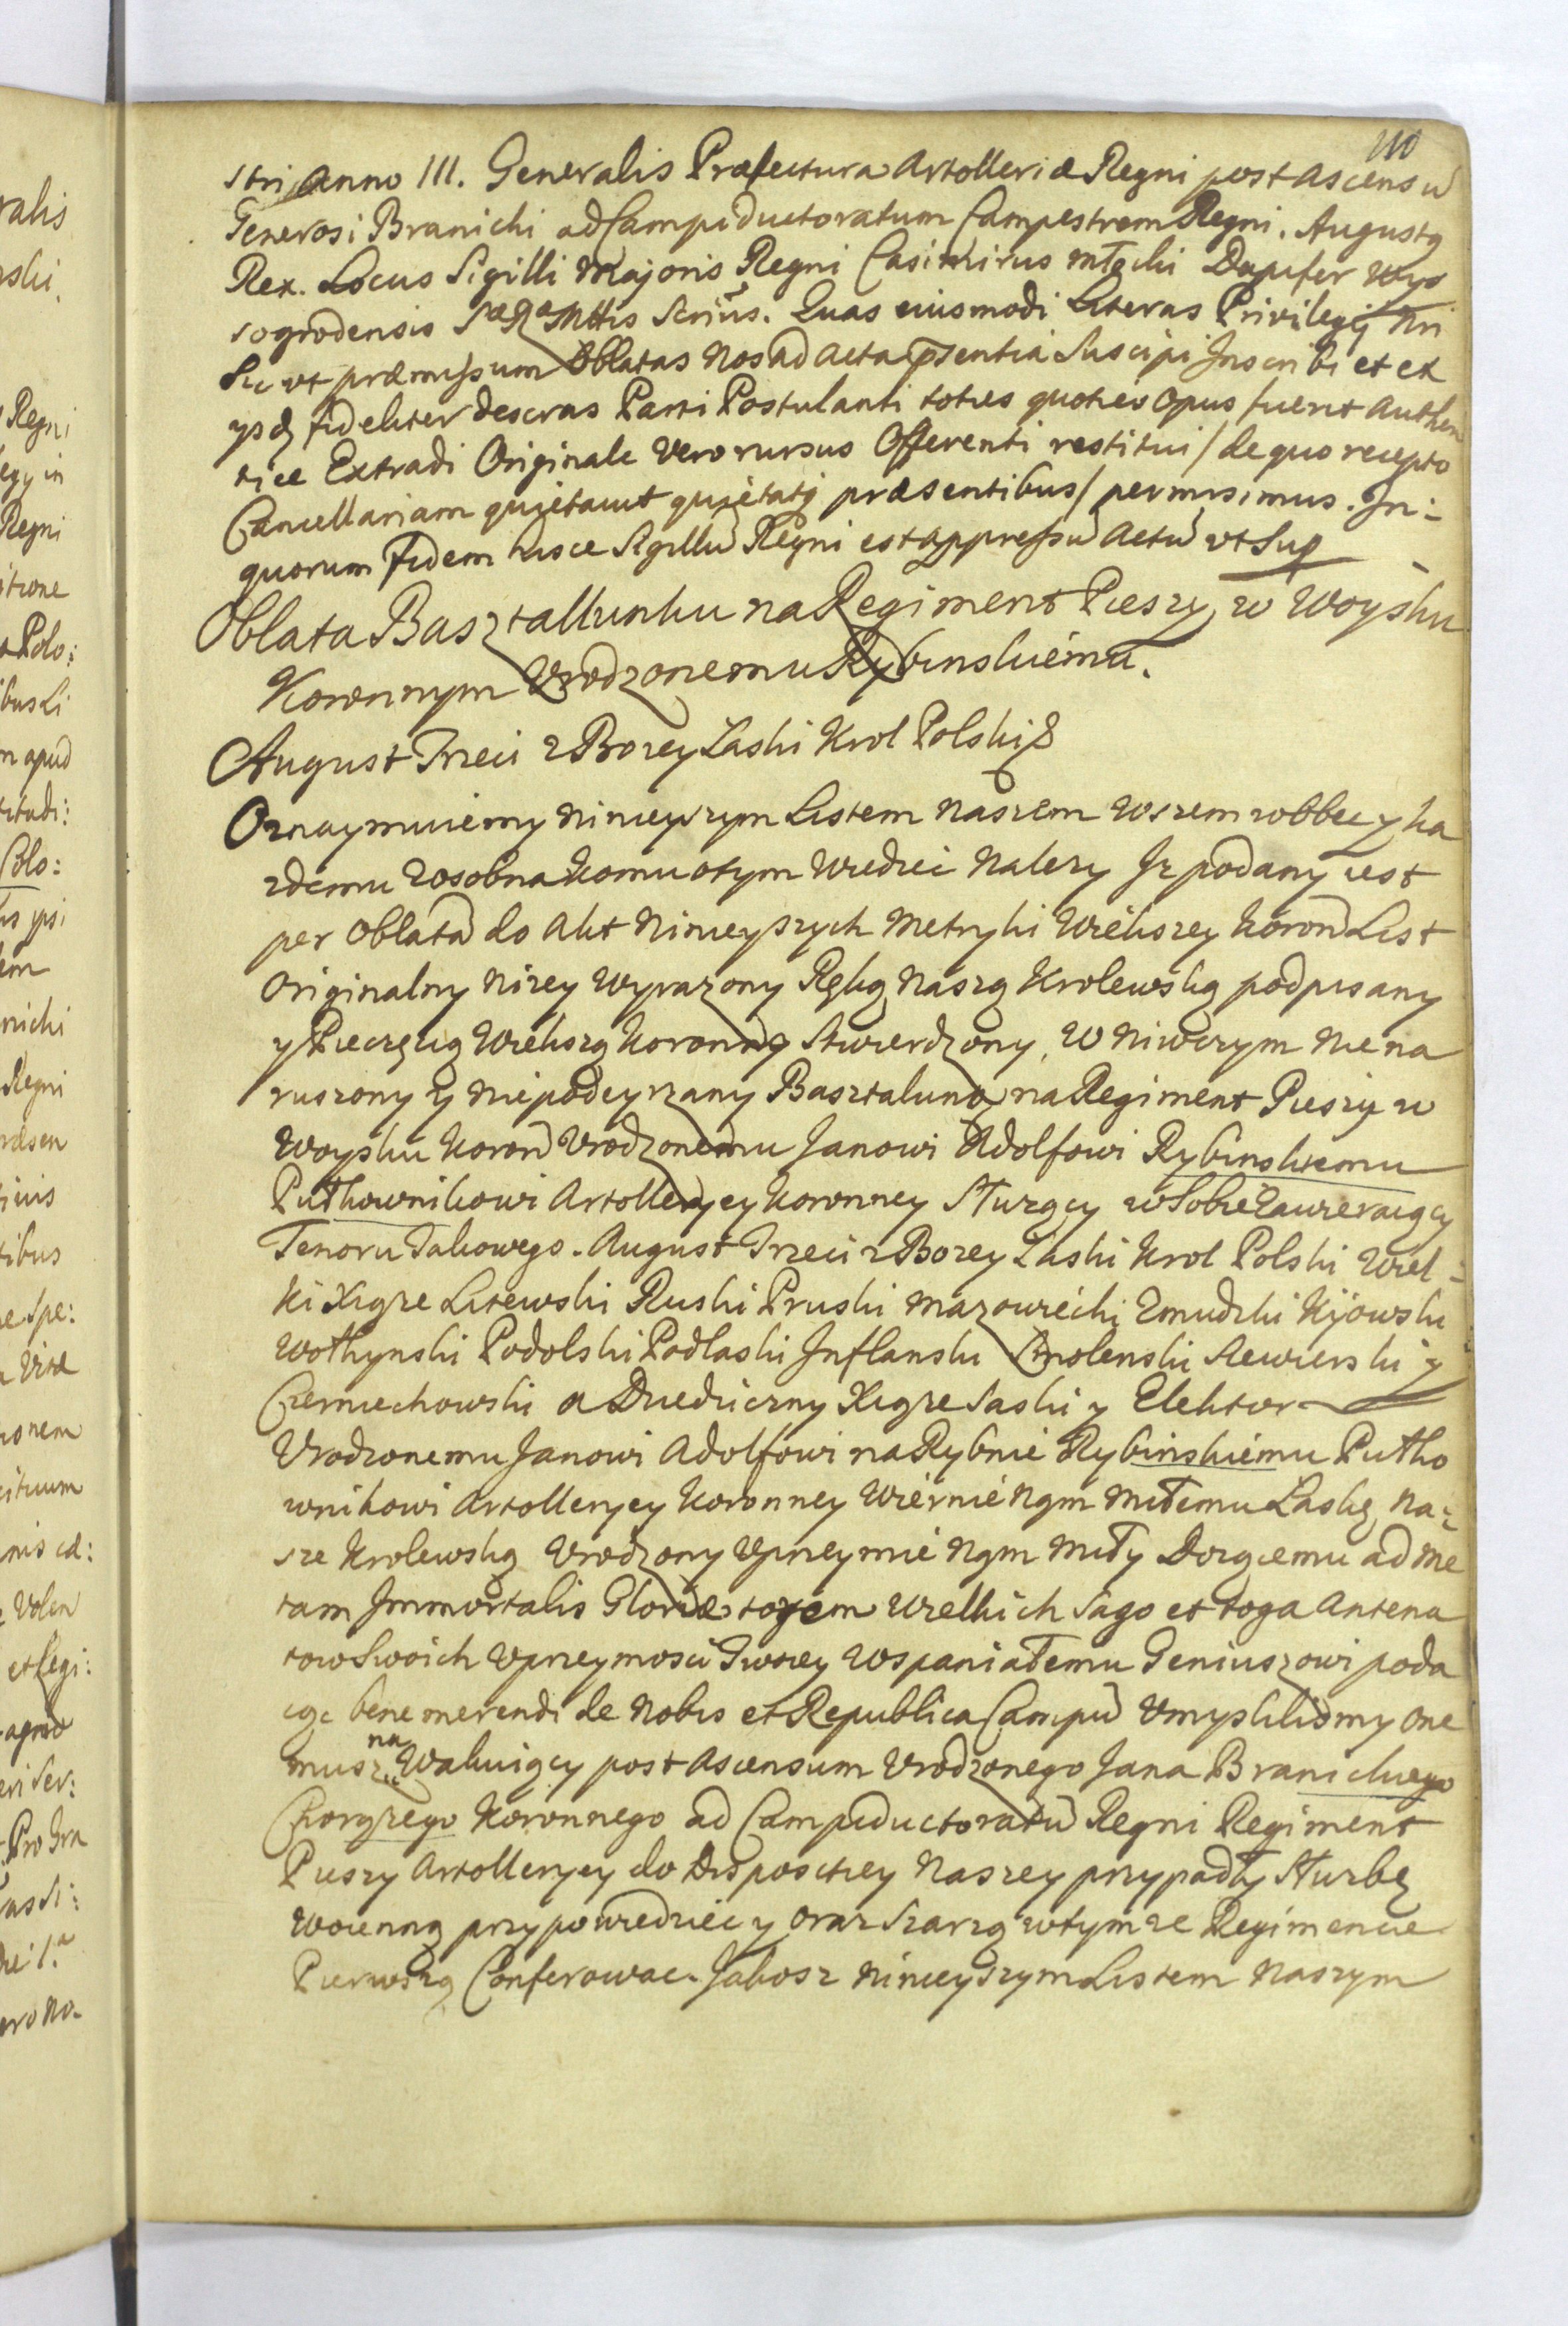 110
stri Anno III. Generalis Præfectura Artolleriæ Regni post Ascensũ
Generosi Branicki ad Campiductoratum Campestrem Regni. Augustg
Rex. Locus Sigilli Majoris Regni Casimirus Młocki Dapifer Wys
sogrodensis Sæ Ræ Mttis Scrius. Quas eiusmodi Literas Privilegij Nri
Sic ut præmissum Oblatas Nos ad Acta psentia Suscipi Inscribi et ex
ysdẽ fideliter descras Parti Postulanti toties quoties Opus fuerit Authen
tice Extradi Originale Vero rursus Offerenti restitui / de quo recepto
Cancellariam quietavit quietatq præsentibus / permisimus. In=
quorum Fidem hisce Sigillũ Regni est appressũ Actũ ut Sup
Oblata Basztallunku na Regiment Pieszy w Woysku
Koronnym Urodzonemu Rybinskiému.
August Trzeci z Bozey Łaski Krol Polski &
Oznaymuiemy Ninieyszym Listem Naszem Wszem wobbec y ka
zdemu Zosobna Komu otym Wiedziec Nalezy Iz podany iest
per Oblatã do Akt Ninieyszych Metryki Wiékszey Koron List
Originalny Nizey Wyrazony Ręką Naszą Krolewską podpisany
y Pieczęcią Wiékszą Koronną Stwierdzony, W Niwczym Niena
ruszony y niépodeyrzany Basztalung na Regiment Pieszy w
Woysku Koron Urodzonemu Janowi Adolfowi Rybinskiemu
Pułkownikowi Artolleryey Koronney Służący w Sobie Zawieraiący
Tenoru Takowego. August Trzeci z Bozey Łaski Krol Polski Wiel=
ki Xiąze Litewski Ruski Pruski Mazowiécki Zmudzki Kijowski
Wołhynski Podolski Podlaski Inflanski Smolenski Siewierski y
Czerniechowski a Dziedziczny Xiąze Saski y Elektor
Urodzonemu Janowi Adolfowi na Rybnié Rybinskiému Pułko
wnikowi Artolleryey Koronney Wiérnié Nąm Miłemu Łaskę Na=
sze Krolewską Urodzony Uprzeymié Nąm Miły Dozącemu ad Me
tam Immortalis Gloriæ torem Wielkich Sago et toga Antena
tow Swoich Uprzeymosci Twoiey Wspaniałemu Geniuszowi poda
iąc bene merendi de Nobis et Republica Campũ Umyslilismy One
musz na Wakuiący post Ascensum Urodzonego Jana Branickiego
Chorązego Koronnego ad Campiductoratũ Regni Regiment
Pieszy Artolleryey do Disposicyey Naszey przypadły Służbę
Woienną przypowiedziéc y Oraz Szarzą wtymze Regimencie
Pierwszą Conferowac. Jakosz Ninieyszym Listem Naszym